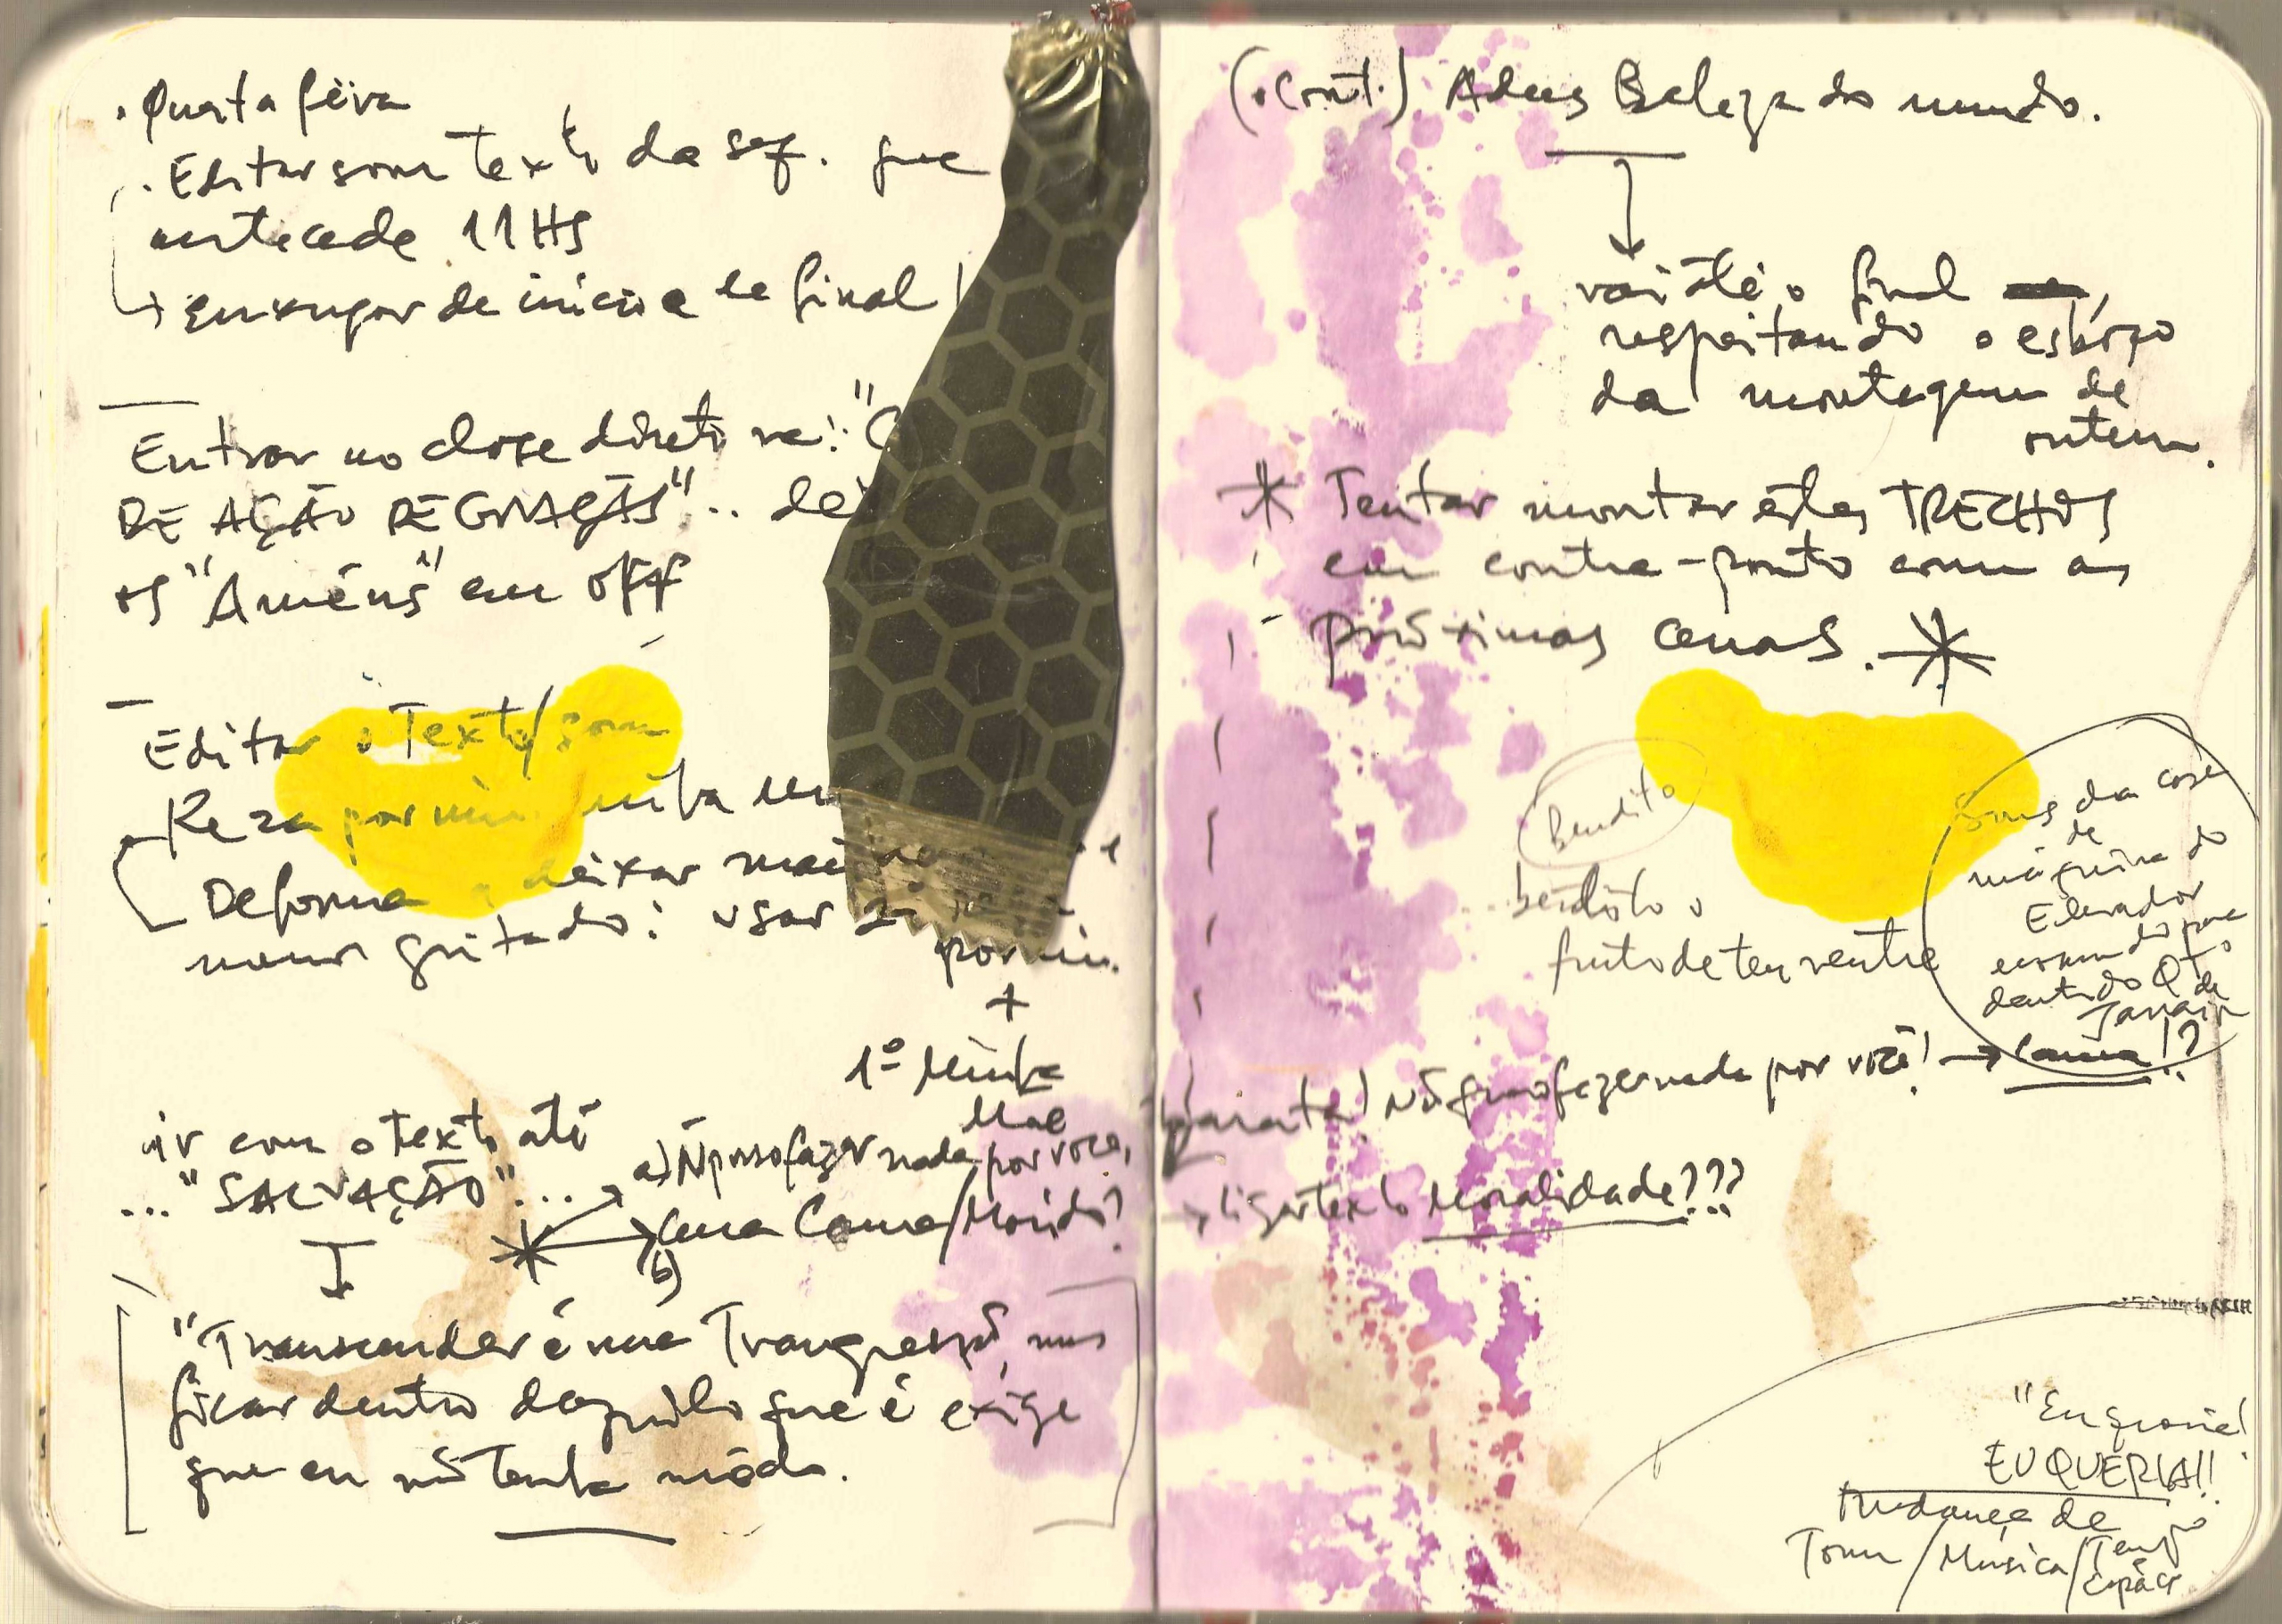 . Quarta feira
. Editar som texto da seq. que
antecede 11 HS
↳ enxugar de início e de final!
Entrar no close direto na: "C
DE AÇÃO DE GRAÇAS" .. de
os "Améns" em off
Editar o Texto/som
Reza por mim minha
Deforma deixar mais
menos gritado: usar
por mim.
+
1º Minha
Mãe
ir com o texto até
... "SALVAÇÃO" ...
a) Ñ posso fazer nada por você,
b) Cena Cama/Marido?
"Transcender é uma Trangressão, mas
ficar dentro daquilo que é exige
que eu não Tenha mêdo.
(. cont.) Adeus Beleza do mundo.
vai até o final ,
respeitando o esboço
da montagem de
ontem.
* Tentar montar estes TRECHOS
em contra-ponto com as
próximas cenas. *
Bendito
... bendito o
fruto de teu ventre
Sons da casa
de
máquina do
Elevador
dentro do Qto
de
Janair
barata! Não posso fazer nada por você! → cama!?
→ ligar texto Moralidade???
"Eu queria!
EU QUERIA!!
Mudança de
Tom / Música / Tempo
Espaço